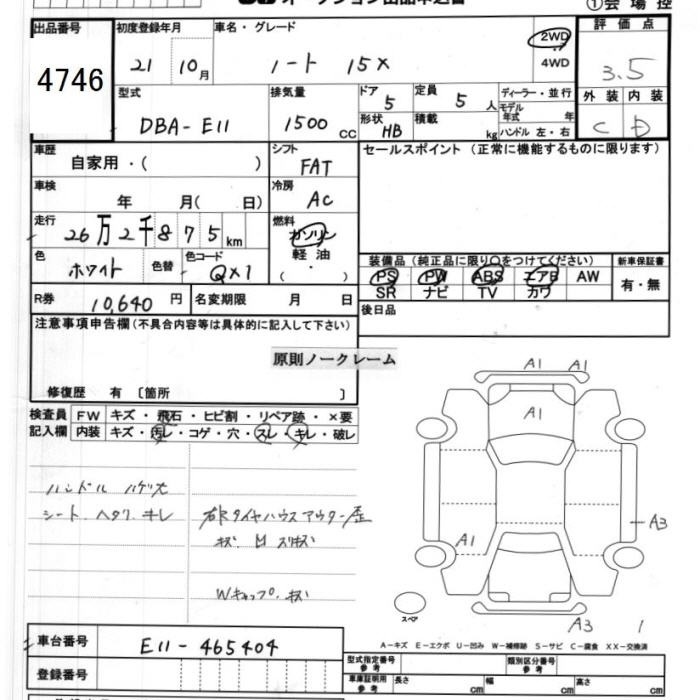 オークション出品申込書 ①会場控
出品番号 初度登録年月 車名・グレード 2WD 評価点
4746 21 10月 ノート 15X 4WD 3.5
型式 排気量 ドア 5 定員 5人 ディーラー・並行 外装 内装
DBA-E11 1500cc 形状 HB 積載 kg モデル年式 年 C D
ハンドル 左・右
車歴 自家用・( ) シフト FAT セールスポイント (正常に機能するものに限ります)
車検 年 月( 日) 冷房 AC
走行 26万2千875km 燃料 ガソリン
軽油
( ・ )
色 ホワイト 色替 色コード QX1 装備品 (純正品に限り○をつけてください) 新車保証書
PS PW ABS エアB AW 有・無
R券 10,640円 名変期限 月 日 SR ナビ TV カワ
注意事項申告欄 (不具合内容等は具体的に記入して下さい) 後日品
原則ノークレーム
修復歴 有 〔箇所 〕
検査員 FW キズ・飛石・ヒビ割・リペア跡・×要
記入欄 内装 キズ・汚レ・コゲ・穴・スレ・キレ・破レ
A1 A1
A1
ハンドル ハゲ大
シート ヘタリ キレ 右Rタイヤハウスアウター
A3
A1
Wキャップ キズ
スペア
A3 1
車台番号 E11-465404
A-キズ E-エクボ U-凹み W-補修跡 S-サビ C-腐食 XX-交換済
登録番号 型式指定番号 参考 類別区分番号 参考
車庫証明用 参考 長さ cm 幅 cm 高さ cm